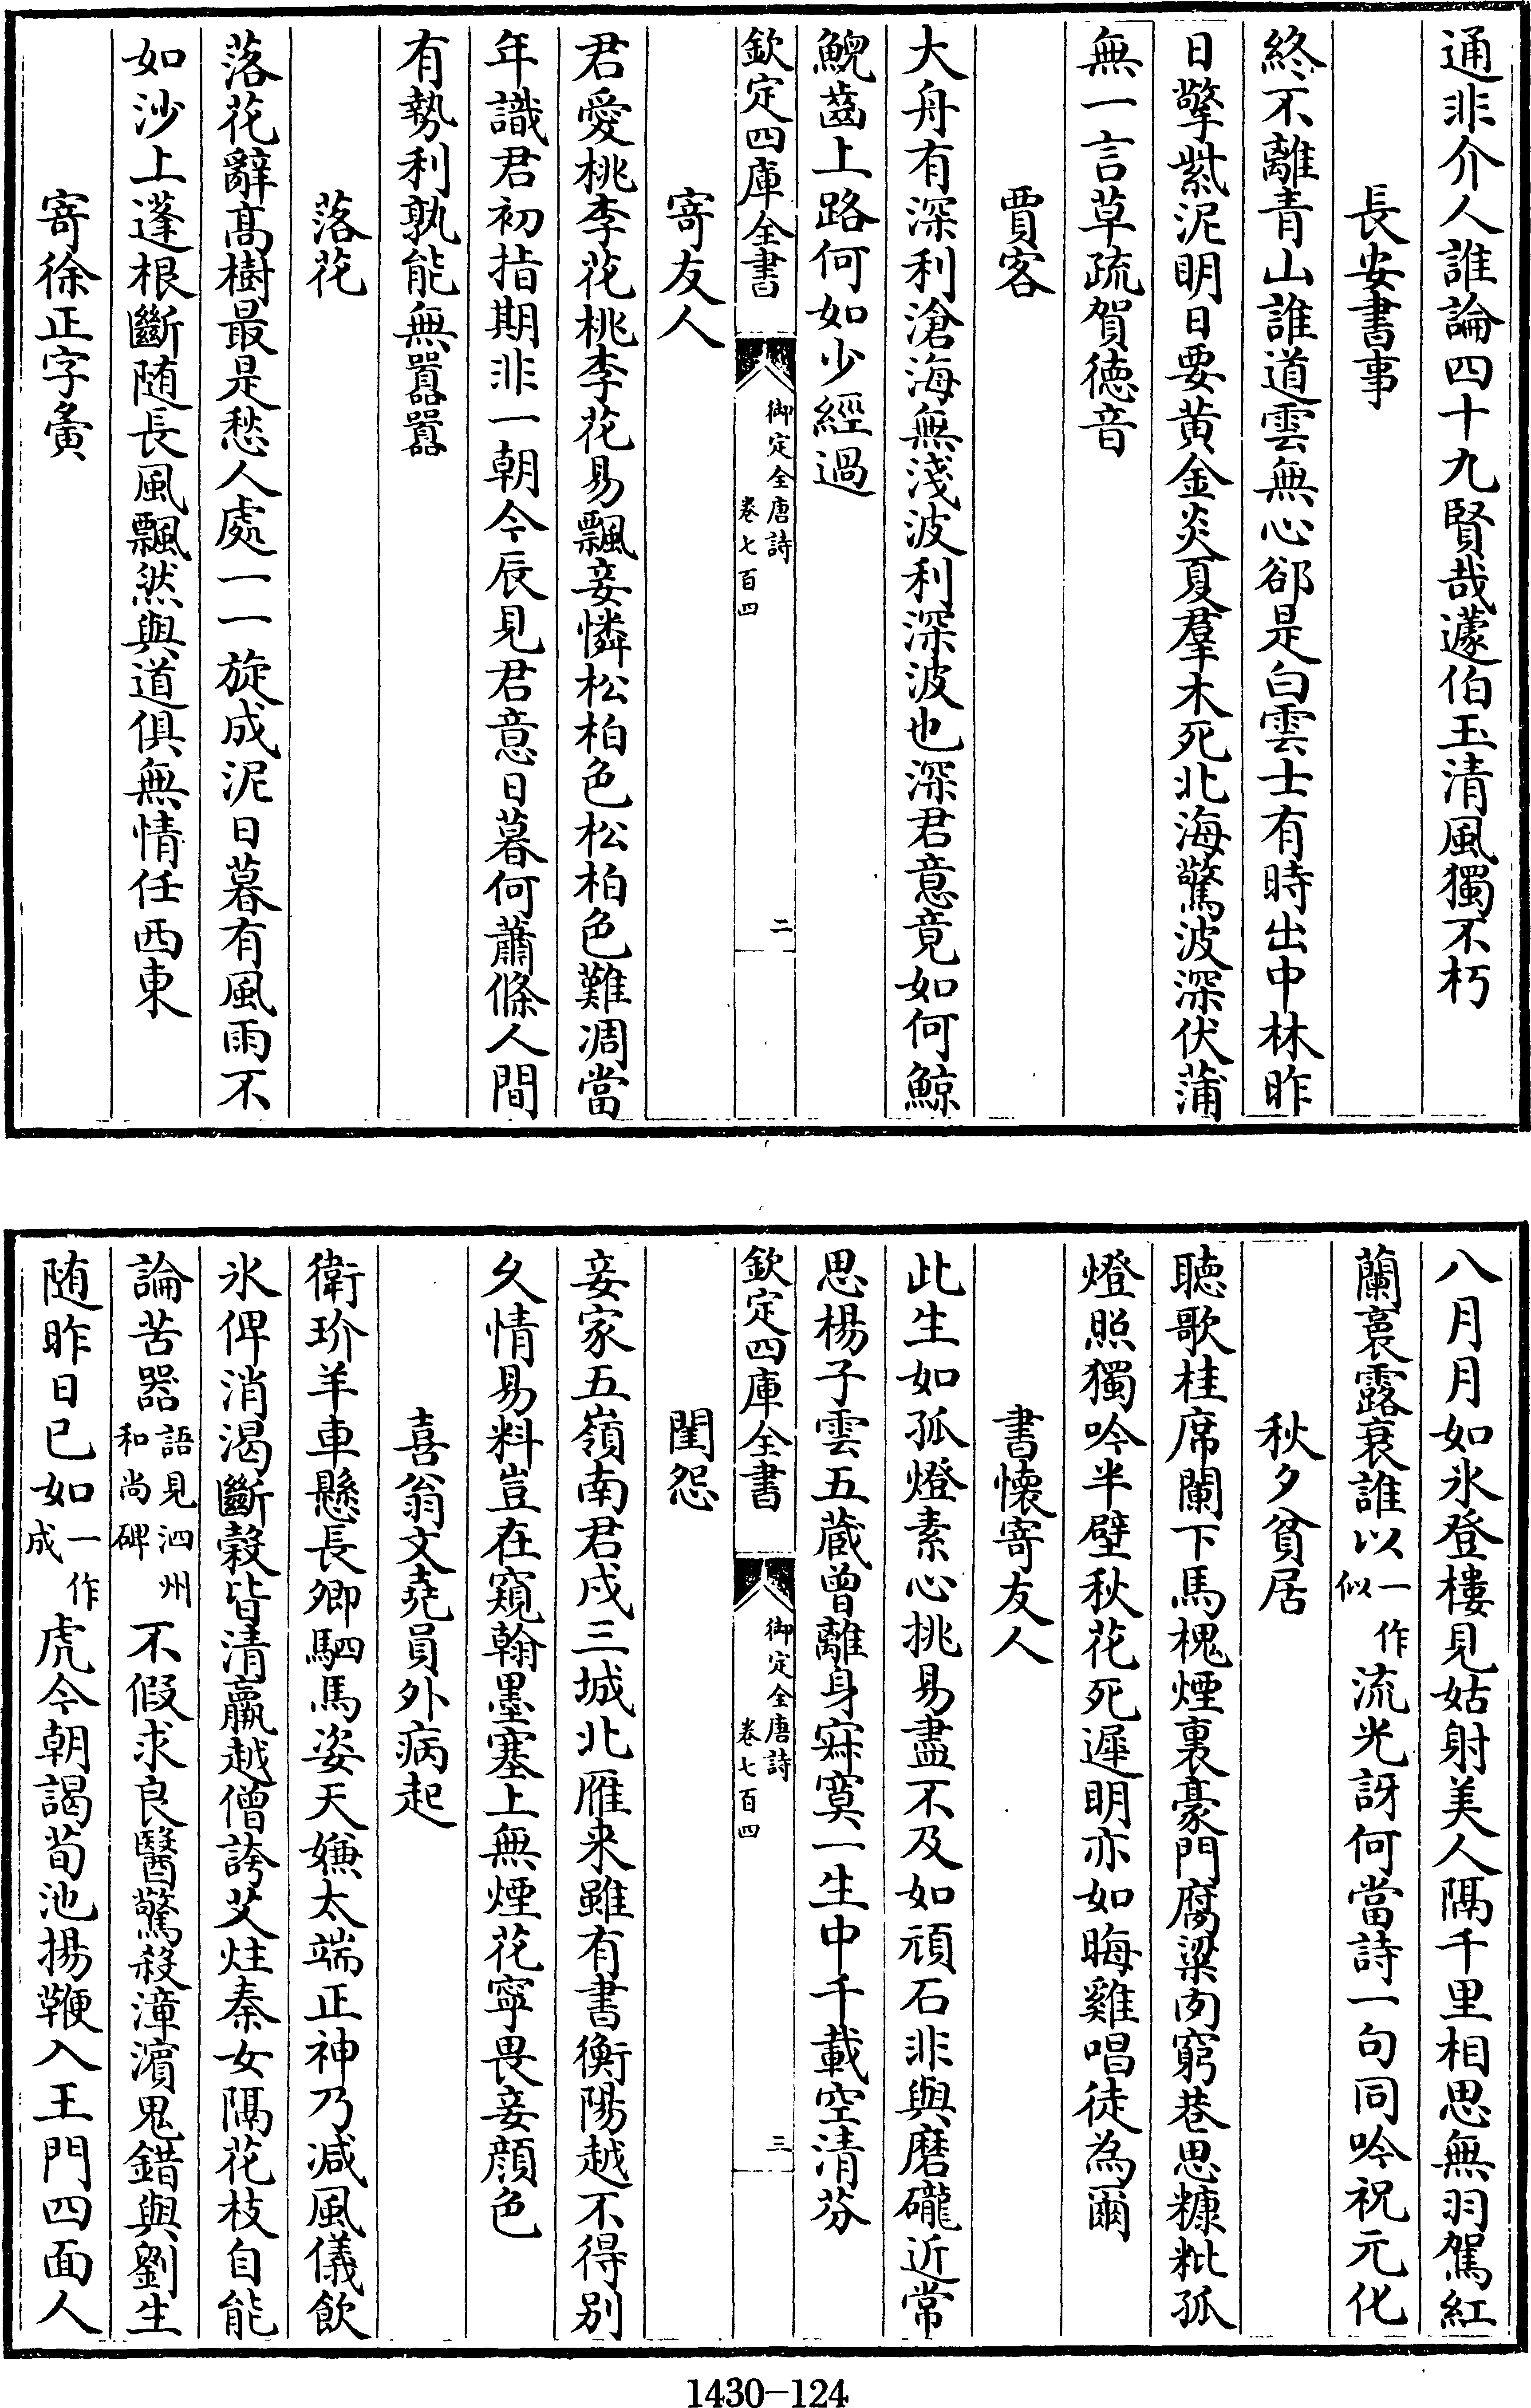 通非介人誰論四十九賢哉蘧伯玉清風獨不朽
長安書事
終不離青山誰道雲無心郤是白雲士有時出中林昨
日擎紫泥明日要黄金炎夏羣木死北海驚波深伏蒲
無一言草疏賀徳音
賈客
大舟有深利滄海無淺波利深波也深君意竟如何鯨
鯢齒上路何如少經過
欽定四庫全書
御定全唐詩
卷七百四
二
寄友人
君愛桃李花桃李花易飄妾憐松柏色松柏色難凋當
年識君初指期非一朝今辰見君意日暮何蕭條人間
有勢利孰能無囂囂
落花
落花辭髙樹最是愁人處一一旋成泥日暮有風雨不
如沙上蓬根斷随長風飄然與道俱無情任西東
寄徐正字夤
八月月如氷登樓見姑射美人隔千里相思無羽駕紅
蘭裛露衰誰以一作似流光訝何當詩一句同吟祝元化
秋夕貧居
聴歌桂席闌下馬槐煙裏豪門腐粱肉窮巷思糠粃孤
燈照獨吟半壁秋花死遲明亦如晦雞唱徒為爾
書懐寄友人
此生如孤燈素心挑易盡不及如頑石非與磨礲近常
思楊子雲五藏曾離身寂寞一生中千載空清芬
欽定四庫全書
御定全唐詩
卷七百四
三
閨怨
妾家五嶺南君戍三城北雁来雖有書衡陽越不得别
久情易料豈在窺翰墨塞上無煙花寧畏妾顔色
喜翁文堯員外病起
衛玠羊車懸長卿駟馬姿天嫌太端正神乃减風儀飲
氷俾消渴斷穀皆清羸越僧誇艾炷秦女隔花枝自能
論苦器語見泗州和尚碑不假求良醫驚殺漳濵鬼錯與劉生
随昨日已如一作成虎今朝謁荀池揚鞭入王門四面人
1430-124